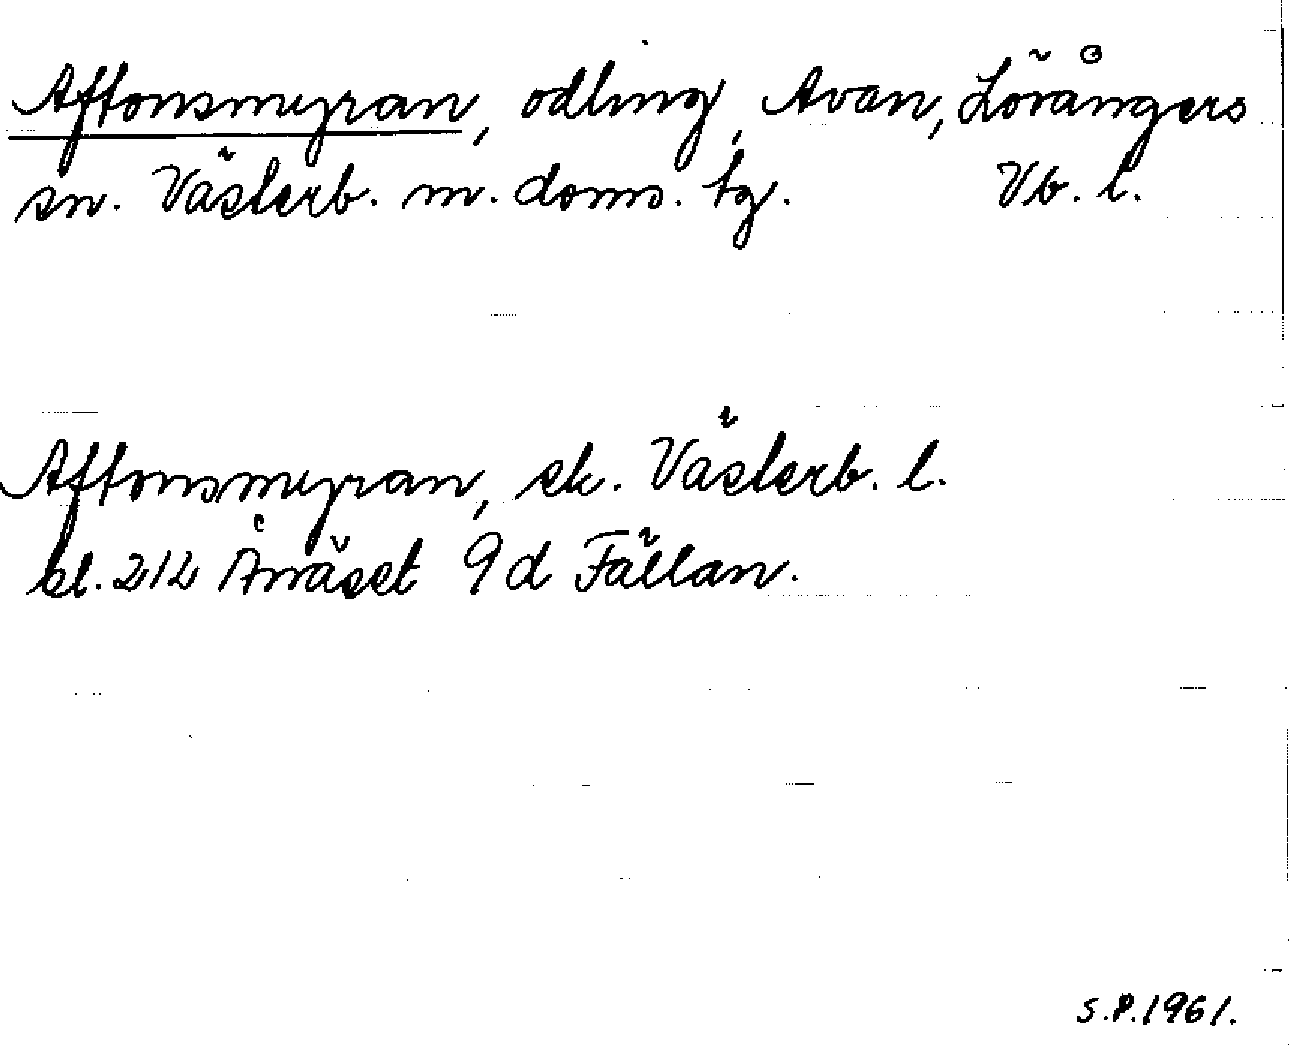 Aftonsmyran, odling, Avan, Lövångers
sn. Västerb. m. doms. tg. Vb. l.
Aftonsmyran, ek. Västerb. l.
bl. 212 Ånäset 9d Fällan.
S.P. 1961.